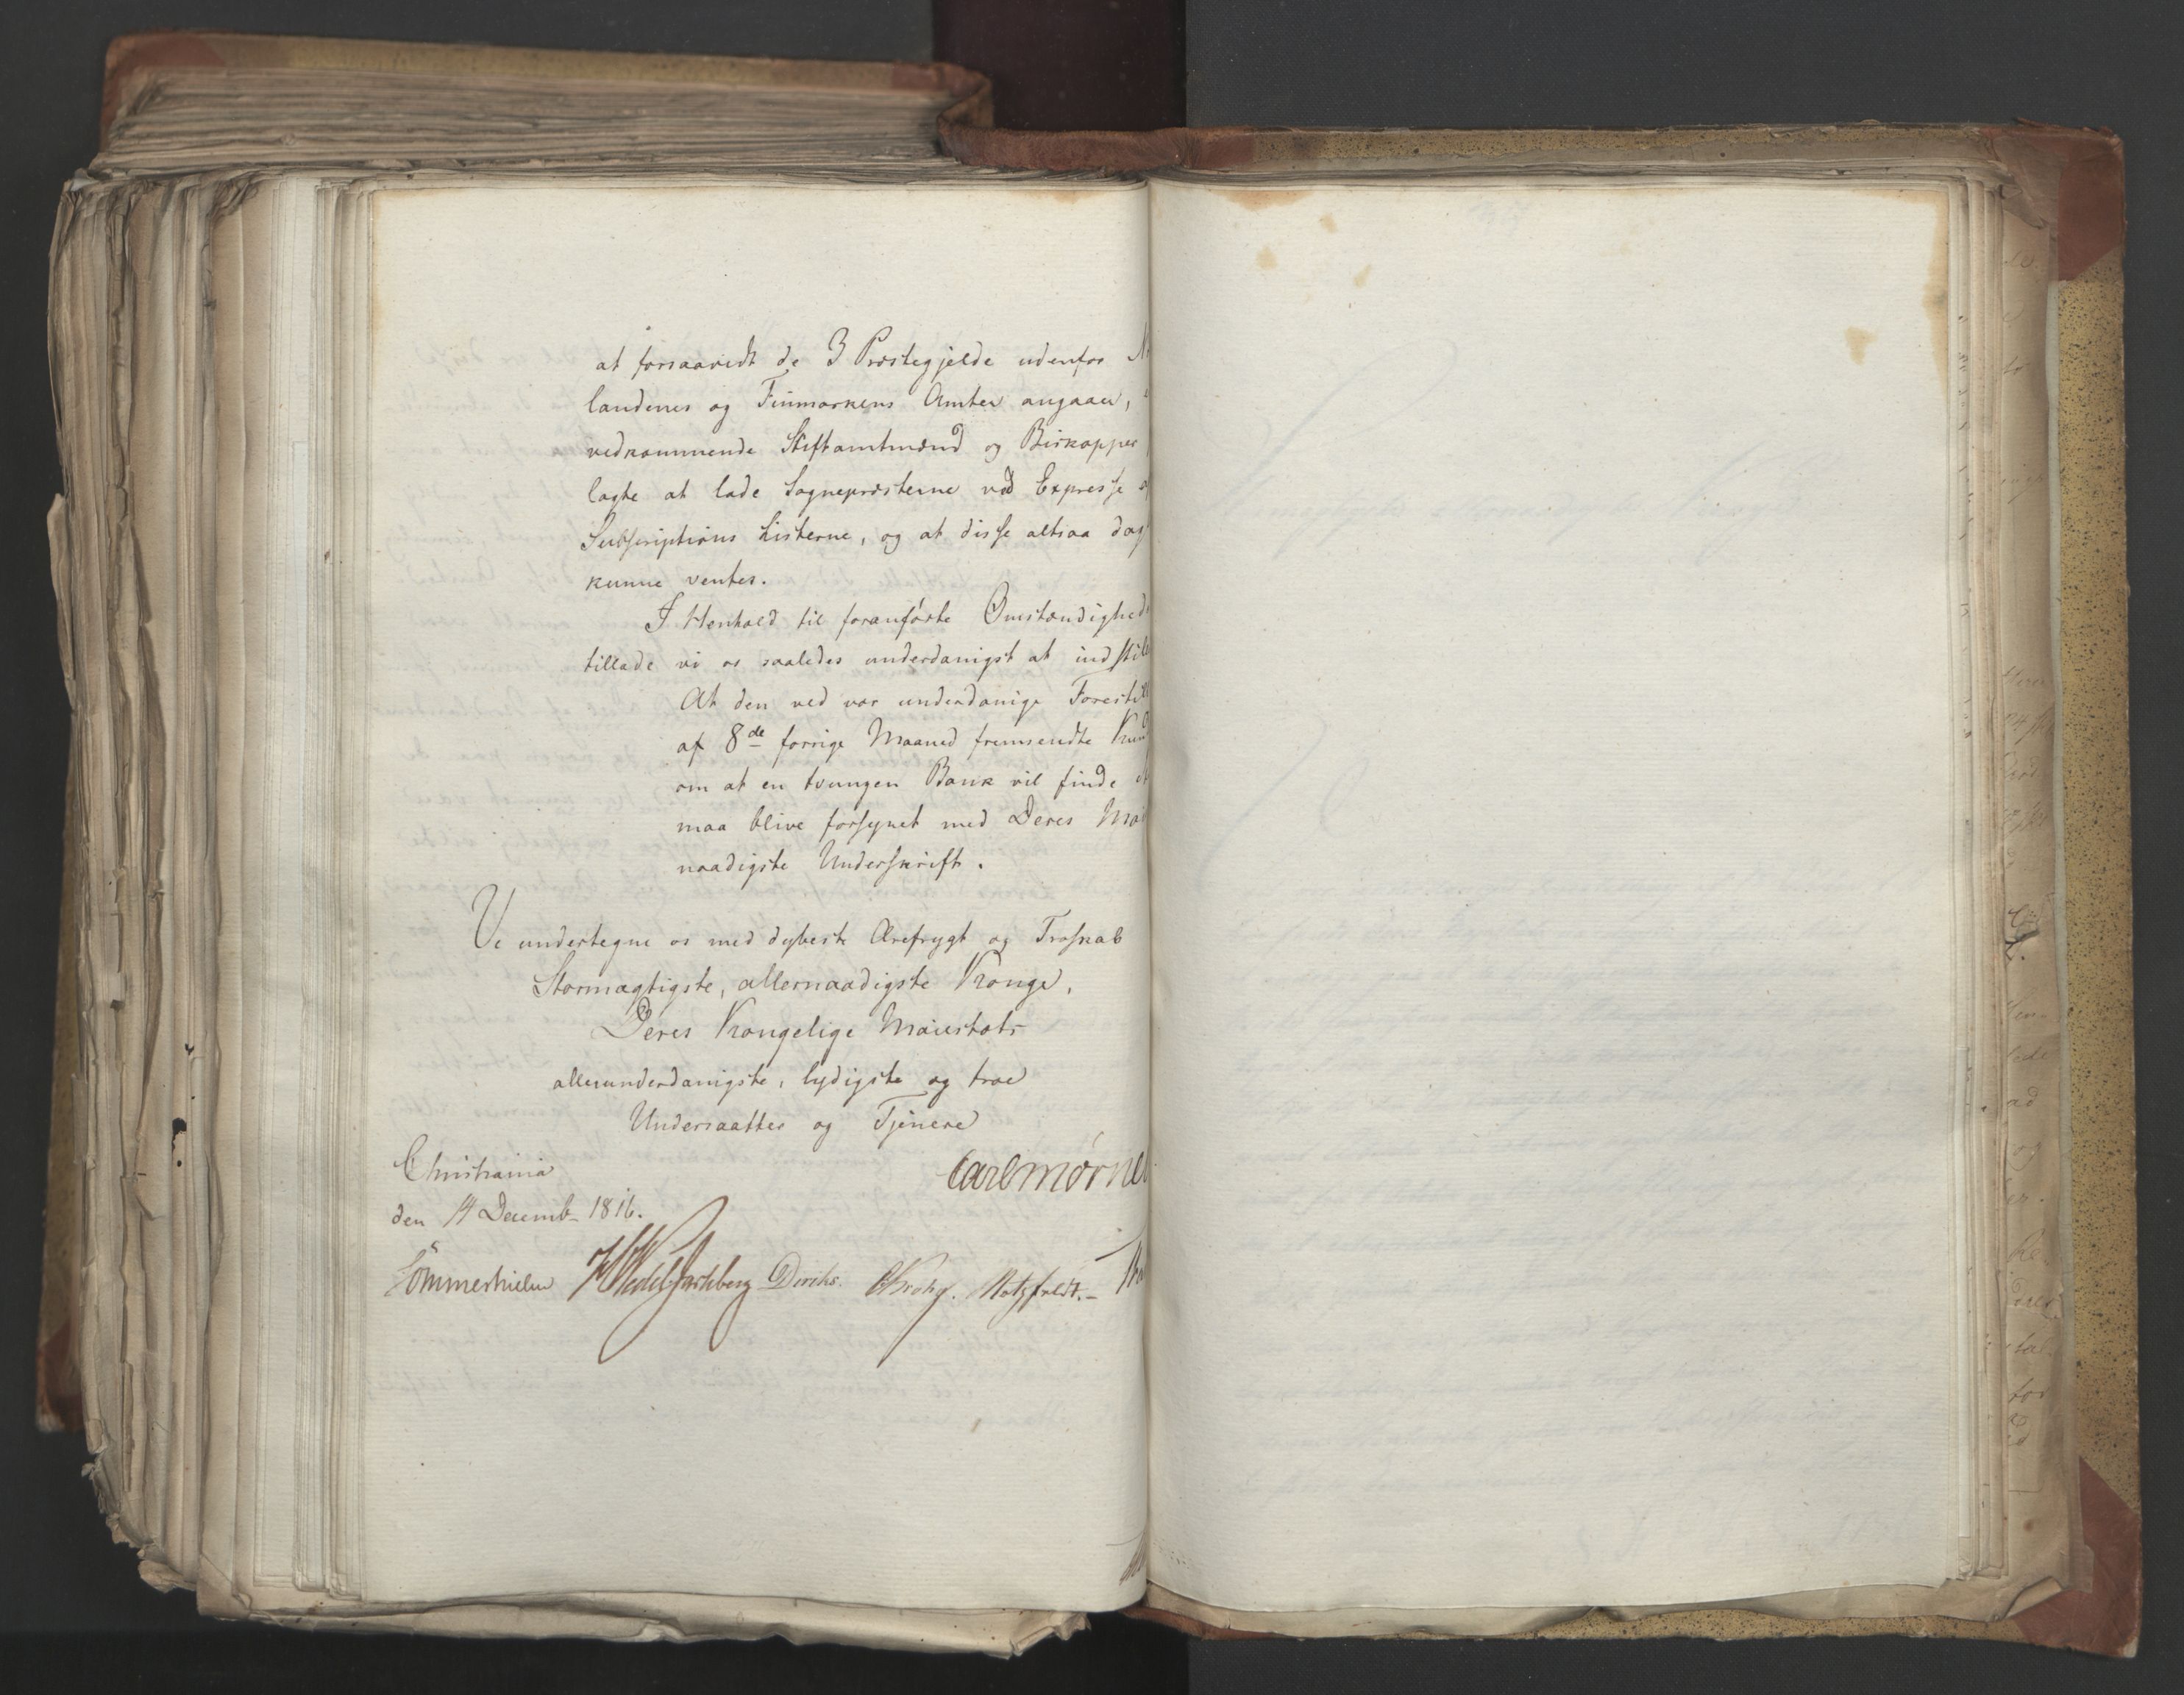 at forsaavidt de 3 Præstegjelde udenfor
landenes og Finmarkens Amter angaaer,
vedkommende Stiftamtmænd og Biskopper
lagte at lade Sognepræsterne ved Expresse
Subscriptions Listerne, og at disse altsaa
kunne ventes.
I Henhold til foranførte Omstændighed
tillade vi os saaledes underdanigst at indstil
At den ved vor underdanige Forestil
af 8de forrige Maaned fremsendte Kund
om at en tvungen Bank vil finde
maa blive forsynet med Deres Mai
naadigste Underskrift.
Vi undertegne os med dybeste Ærefrygt og Troskab
Stormægtigste, allernaadigste Konge,
Deres Kongelige Maiestæts
allerunderdanigste, lydigste og troe
Undersaatter og Tjenere
Christiania
den 14 Decemb. 1816.
Carl Mörner
Sommerhielm HWedel Jarlsberg Diriks. CKrohg. Motzfeldt.